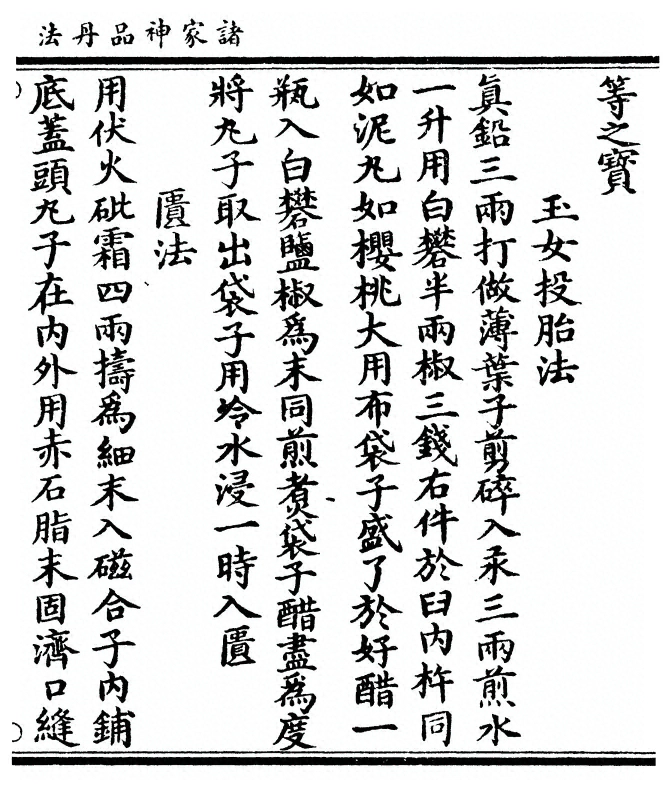 諸家神品丹法
等之寶
玉女投胎法
真鉛三兩打做薄葉子剪碎入汞三兩煎水
一升用白礬半兩椒三錢右件於臼內杵同
如泥丸如櫻桃大用布袋子盛了於好醋一
瓶入白礬鹽椒為末同煎煮袋子醋盡為度
將丸子取出袋子用冷水浸一時入匱
匱法
用伏火砒霜四兩擣為細末入磁合子內鋪
底蓋頭丸子在內外用赤石脂末固濟口縫